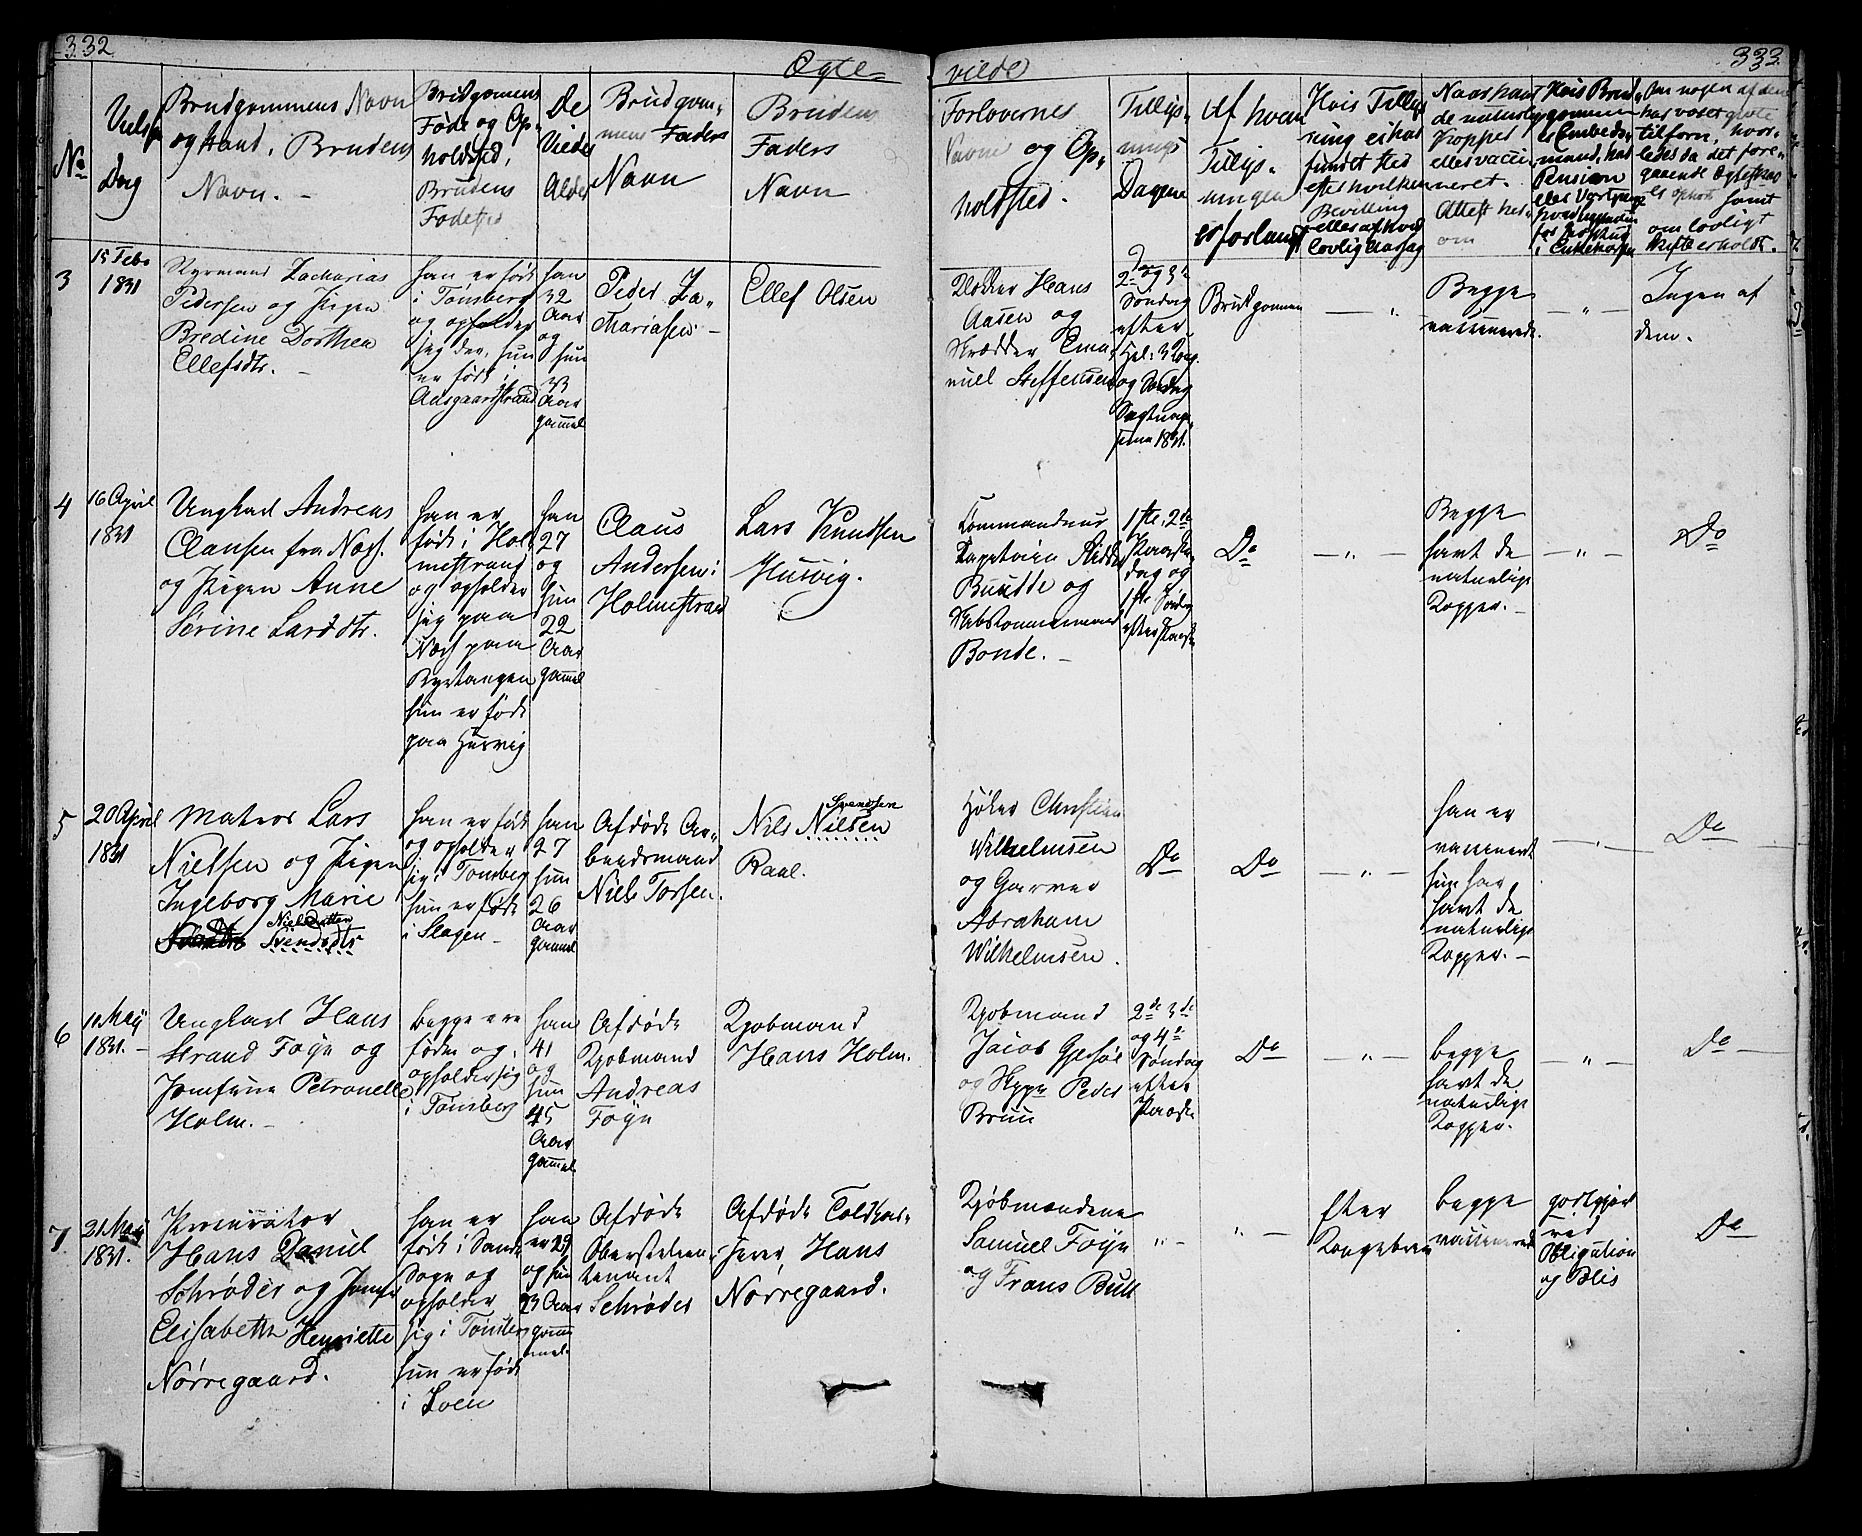 332
Ægte-
vilde
333
No
Dag
Brudgommens Navn
og Stand, Brudens
Navn. -
Brudgomens
Føde og Op-
holdsted,
Brudens
Fødested
De
Viedes
Alder
Brudgom-
mens Faders
Navn
Brudens
Faders
Navn
Forlovernes
Navne og Op-
holdsted.
Tillys-
nings
Dagene
Af hvem
Tillys-
ningen
er forlangt
Hvis Tillys-
ning ei har
fundet sted
efter hvilken
Bevilling
eller af hvad
lovlig Aarsag
Naar havt
de naturlige
Kopper
eller vacci-
neret.
Attest her-
om
Hvis Brud-
gommen
er Embeds-
mand, har
Pension
Om nogen af dem
har været givte
tilforn, hvor-
ledes da det fore-
gaaende Ægteskab
er ophørt samt
om lovligt
Skifte erholdt.
3
15 Febr
1831
Styrmand Zacharias
Pedersen og Pigen
Bredine Dorthea
Ellefsdtr. -
han er født
i Tønsberg
og opholder
sig der, hun
er født i
Aasgaardstrand
han
32
Aar
og
hun
33
Aar
gammel
Peder Za-
chariasen. -
Ellef Olsen
Klokker Hans
Aasen og
Skrædder Ema-
nuel Steffensen
2den og 3de
Søndag
efter
Hel: 3 Kong.
og Søndag
1831.
Brudgommen
- " -
Begge
vaccinerede.
- " -
Ingen af
dem.
4
16 April
1831
Ungkarl Andreas
Clausen fra Næs.
og Pigen Anne
Serine Larsdtr.
han er
født i Hol-
mestrand
og opholder
sig paa
Næs paa
hun er født
paa Husvig
han
27
og
hun
22
Aar
gammel
Claus
Andersen i
Holmestrand
Lars Knudsen
Husvig.
Commandeur
Capitain
og
Bonde. -
1ste, 2de
Paaske-
dag og
1ste Søndag
efter Paaske
Do
- " -
Begge
havt de
naturlige
Kopper. -
- " -
Do
5
20 April
1831
Matros Lars
Nielsen og Pigen
Ingeborg Marie
Nielsdatter
Svendsdtr
han er født
og opholder
sig i Tønsberg
hun er født
i Slagen -
han
27
hun
26
Aar
gammel
Afdøde Ar-
beidsmand
Niels Torsen.
Svendsen
Nils Nilsen
Raal.
Høker Christian
Wilhelmsen
og Garver
Abraham
Wilhelmsen.
Do
Do
- " -
han er
vaccineret
hun har
havt de
naturlige
Kopper. -
- " -
Do
6
10 Maij
1831. -
Ungkarl Hans
Strand Foÿn og
Jomfrue Petronelle
Holm. -
begge ere
fødte og
opholder sig
i Tønsberg
han
41
og
hun
45
Aar
gammel
Afdøde
Kjøbmand
Andreas
Foÿn
Kjøbmand
Hans Holm.
Kjøbmand
Jacob Gjersøe
og Skippr Peder
Bruun
2de 3de
og 4de
Søndag
efter
Paaske
Do
- " -
begge
havt de
naturlige
Kopper.
- " -
Do -
7
21 Maij
1831.
Procurator
Hans Daniel
Schrøder og Jomfr
Elisabeth Henriette
Nørregaard.
han er
født i Sande
Sogn og
opholder
sig i Tønsberg
hun er født
i Loen
han
er 29
og hun
23 Aar
gam
mel.
Afdøde
Oberstleieu-
tenant
Schrøder
Afdøde Toldkas-
serer, Hans
Nørregaard.
Kjøbmændene
Samuel Foÿn
og Frans Bull
" -
" -
Efter
Kongebrev
begge
vaccinerede
godtgjort
ved
Obligation
og
Do